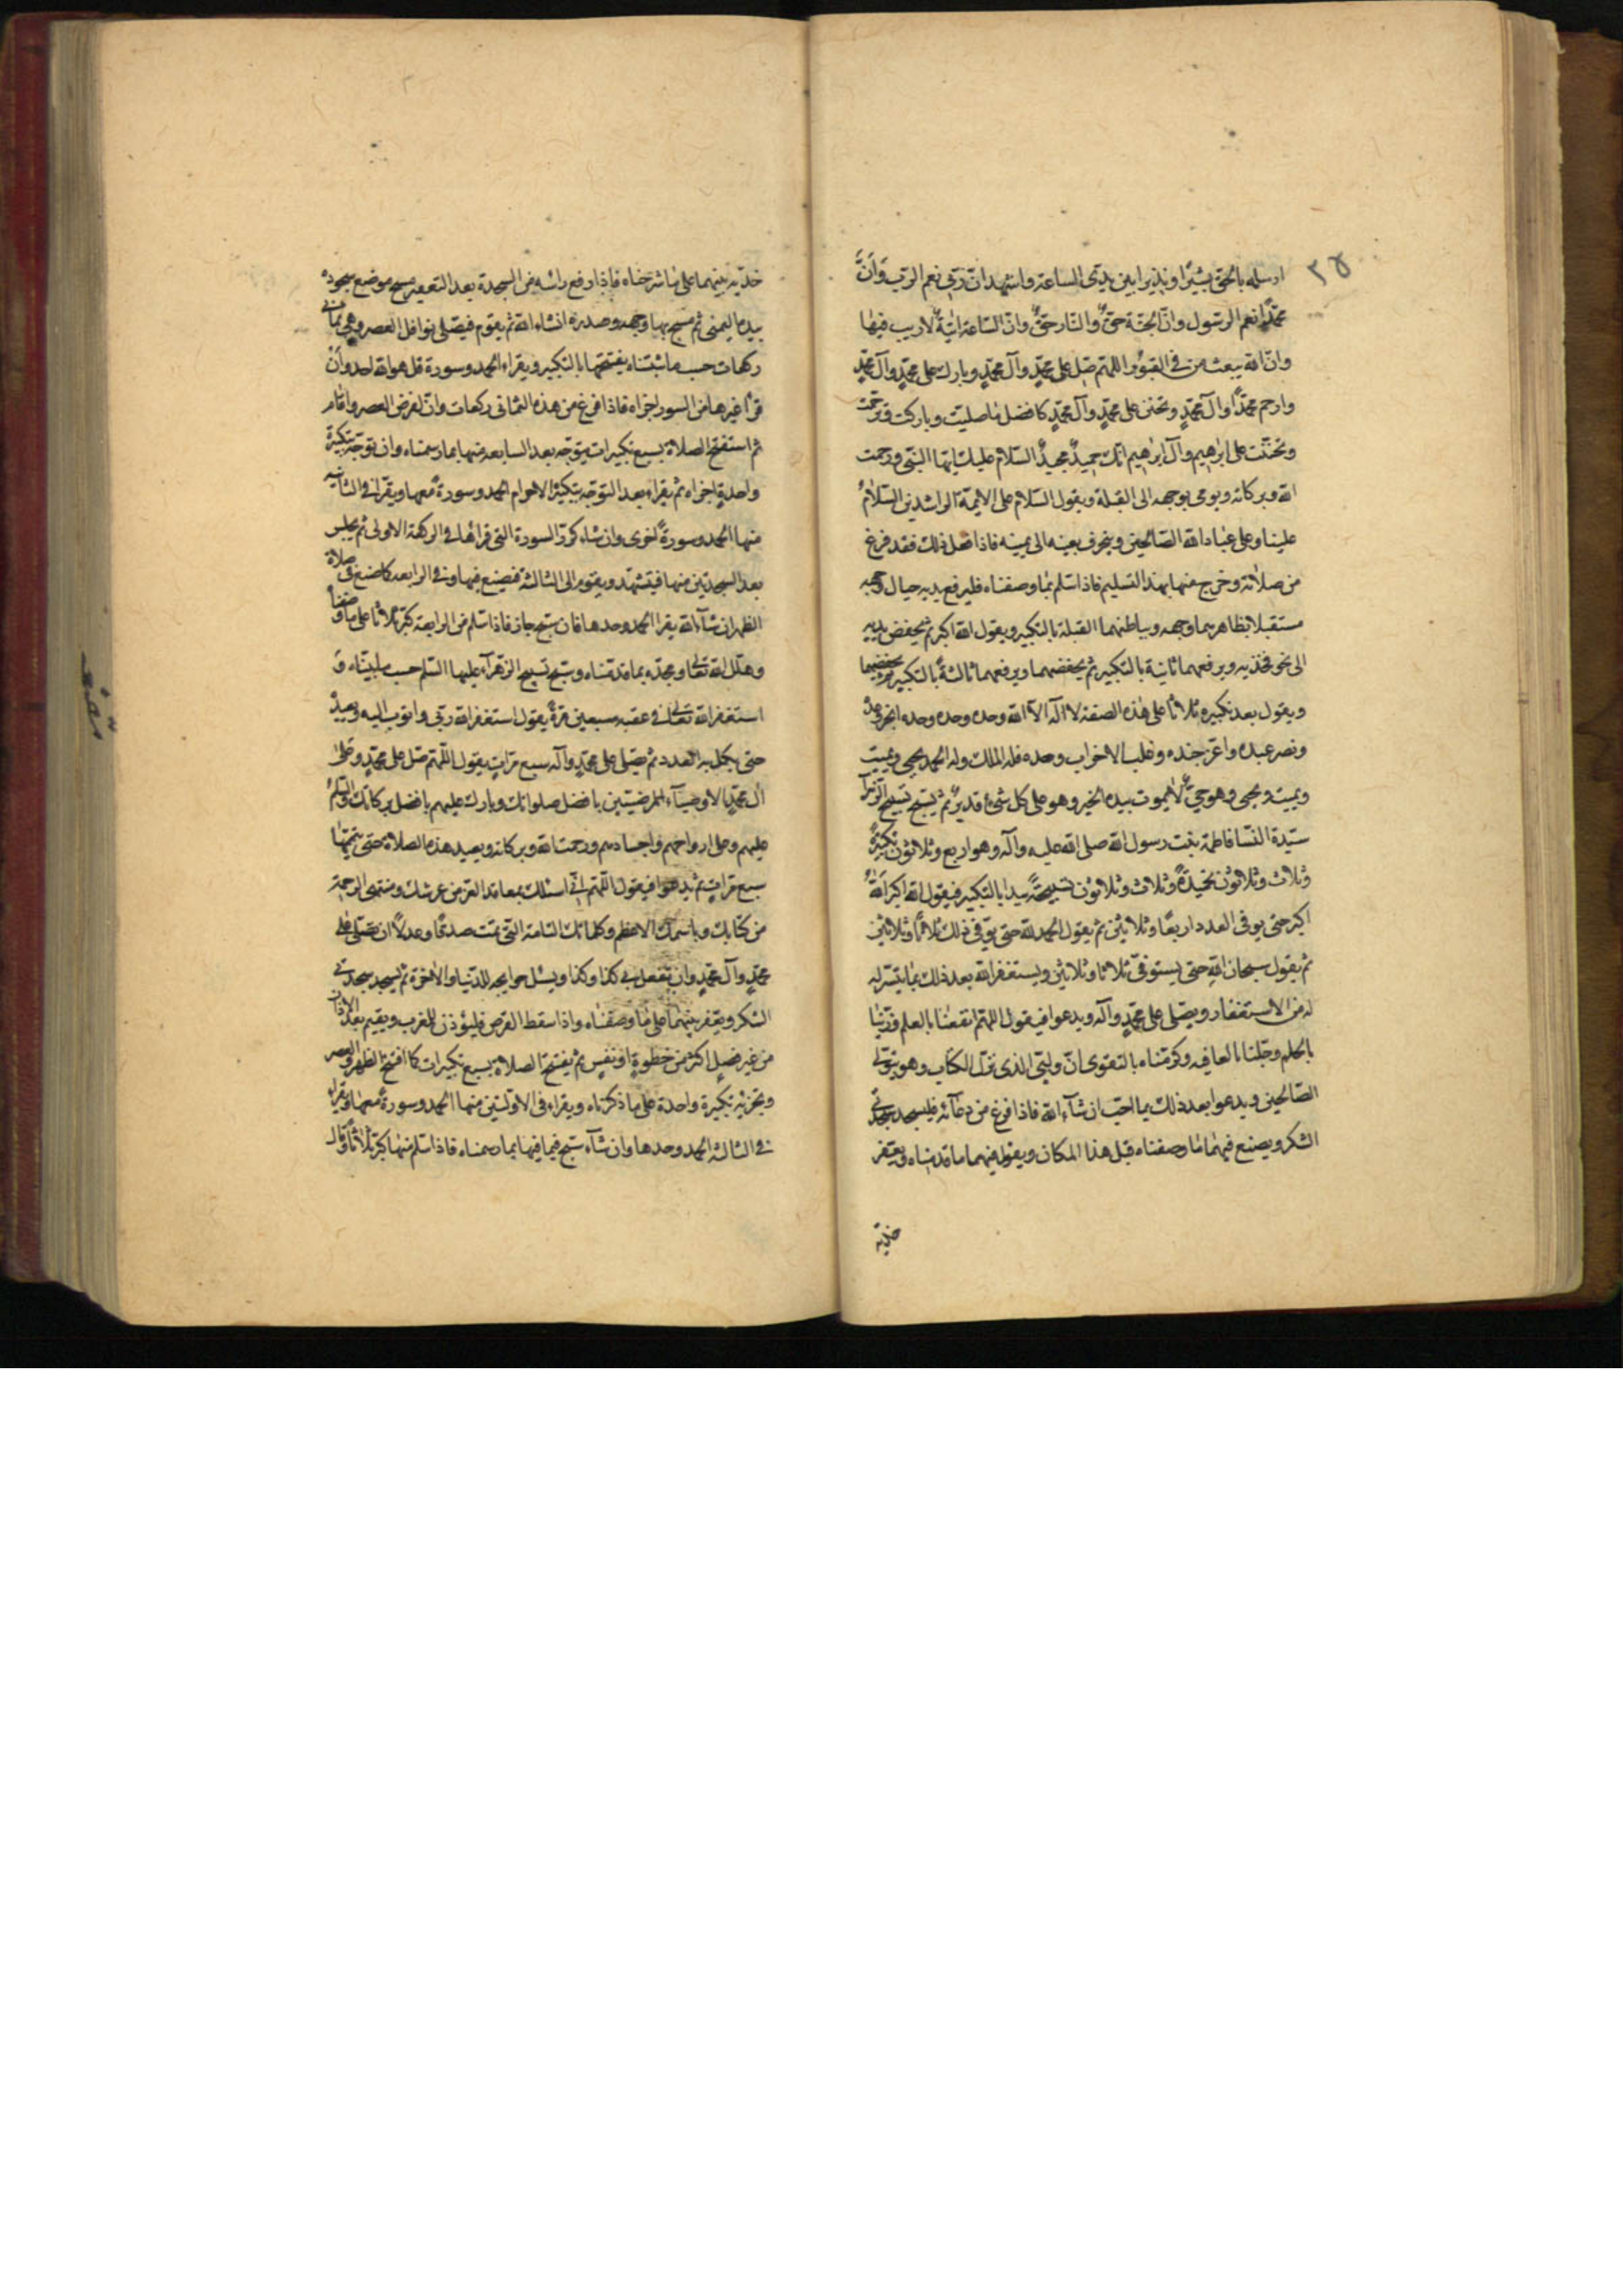 ٢٥
ارسله بالحق بشيرًا ونذيرا بين يدى الساعة واشهد ان ربى نعم الرب وَاَنَّ
محمدًا نعم الرسول وانّ الجنّة حقٌ والنّار حقٌ وانّ السّاعة اٰتيةٌ لاريب فيهٰا
وانّ اللّه يبعث من فى القبُور اللهمّ صلِّ على محمّدٍ وآل محمّدٍ وبارك على محمّدٍ وآل محمّدٍ
وارحم محمّدًا وآل محمّدٍ وتحنن على محمّدٍ وآل محمّدٍ كافضل مٰا صليت وباركت وترحمت
وتحنّنت على ابرٰهيم وآل ابرٰهيم انّك حميدٌ مجيدٌ السّلام عليك ايّها النبّى ورحمت
اللّه وبركاته ويومى بوجهه الى القبلة ويقول السّلام على الائمّة الراشدين السّلامُ
علينا وعلى عبٰاد اللّه الصّالحين وينحرف بعينه الى يمينه فاذا فعل ذلك فقد فرغ
من صلاته وخرج منها بهذا التسليم فاذا سلم بمٰا وصفناه فليرفع يديه حيال وجهه
مستقبلا بظاهرهما وجهه وبباطنهما القبلة بالتكبير ويقول اللّه اكبر ثم يخفض يديه
الى نحو فخذيه ويرفعهما ثانية بالتكبير ثم يخفضهما ويرفعهما ثالثةً بالتكبير ثم يخفضهما
ويقول بعد تكبيره ثلاثًا على هٰذه الصفة لا اله الاّ اللّه وحده وحده وحده انجز وعدهُ
ونصر عبده واعزّ جنده وغلب الاحزاب وحده فله الملك وله الحمد يحيى ويميت
ويميت ويحيى وهو حىٌّ لاٰيموت بيده الخير وهو على كل شئ قديرٌ ثم يسبّح تسبيح الزهرآء
سيّدة النّسا فاطمة بنت رسول اللّه صلى اللّه عليه وآله وهو اربع وثلاثون تكبيرةً
وثلاث وثلاثون تحميدةً وثلاث وثلاثون تسبيحةً يبدا بالتكبير فيقول اللّه اكبر اللّهُ
اكبر حتى يوفى العدد اربعًا وثلاثين ثم يقول الحمد للّه حتى يوفى ذلك ثلاثًا وثلاثين
ثم يقول سبحان اللّهِ حتى يستوفىّ ثلاثا وثلاثين ويستغفر اللّه بعد ذلك بمٰا يتسّر له
له من الاستغفار ويصّلى على محمّدٍ وآله ويدعوا فيقول اللهم انفعنٰا بالعلم وزيّنٰا
بالحلم وجمّلنا بالعافيه وكرّمنا بالتقوى انّ وليّى الذى نزّل الكتٰاب وهو يتولى
الصّالحين ويدعوا بعد ذلك بما احبّ ان شآء اللّه فاذا فرغ من دعآئه فليسجد سجدتى
الشكر ويصنع فيهمٰا مٰا وصفناه قبل هذا المكان ويقول فيهما ما قدمناه ويعفّر
خدّيه
خدّيه بينهما على مٰا شرحنٰاه فاذا رفع رائسه من السجدة بعد التعفير مسح موضع سجوده
بيده اليمنى ثم مسح بها وجهه وصدره انشاء اللّه ثم يقوم فيصّلى نوافل العصر وهى ثمانى
ركعات حسب ما بثتناه يفتتحها بالتكبير ويقراء الحمد وسورة قل هو اللّه احد وان
قرأ غيرها من السور اجزاه فاذا فرغ من هذه الثمانى ركعات واذّن لفرض العصر واقام
ثم استفتح الصلاة بسبع تكبيرات يتوجّه بعد السابعه منها بما رسمناه وان توجّه بتكبيرة
واحدةٍ اجزاه ثم يقراء بعد التوجّه بتكبيرة الاحرام الحمد وسورةً معها ويقرا فى الثانيه
منها الحمد وسورةً اخرى وان شاء كرّر السورة التى قراهٰا فى الركعة الاولى ثم يجلس
بعد السجدتين منها فيتشهّد ويقوم الى الثالثة فيصنع فيها وفى الرابعه كما صنع فى صلاة
الظهر ان شآء اللّه يقرا الحمد وحدها فان سبّح جاز فاذا سلم من الرابعة كبّر ثلاثًا على ما وصفنٰا
وهلّل اللّه تعالى ومجّده بما قدّمناه وسبّح تسبيح الزهرآء عليها السّلم حسب ما بيّناه وَ
استغفر اللّه تعالى فى عقبه سبعين مرةً يقول استغفر اللّه ربّى واتوب اليه ويعيدُ
حتى يكمل به العدد ثم يصّلى على محمّدٍ وآله سبع مرّاتٍ يقول اللّهم صّل على محمّدٍ وعلى
اٰل محمّدٍ الاوصيآء المرضيّين بافضل صلواتك وبارك عليهم بافضل بركاتك والسّلمُ
عليهم وعلى ارواحهم واجسادهم ورحمت اللّه وبركاته ويعيد هذه الصلاة حتى يتمّهٰا
سبع مرّاتٍ ثم يدعوا فيقول اللّهم انّى اسئلك بمعاقد العزّ من عرشك ومنتهى الرحمة
من كتابك وباسمك الاعظم وكلماتك التامة التى تمّت صدقًا وعدلاً ان تصّلى على
محمّدٍ وآل محمّدٍ وان تفعل بى كذا وكذا ويسئل حوايجه للدنيا والاخرة ثم يسجد سجدتى
الشكر ويعفّر بينهمٰا على مٰا وصفنٰاه واذا سقط القرص فليؤذن للمغرب ويقيم بعد الاذان
من غير فصلٍ اكثر من خطوةٍ او نفسٍ ثم يفتتح الصلاة بسبع تكبيرات كما افتتح الظهر والعصر
ويجزئه تكبيرة واحدة على ما ذكرناه ويقراء فى الاوليّين منها الحمد وسورةً معهٰا ويقرا
فى الثالثه الحمد وحدها وان شآء سبّح فيها بما رسمناه فاذا سلم منهٰا كبّر ثلاثًا وقال